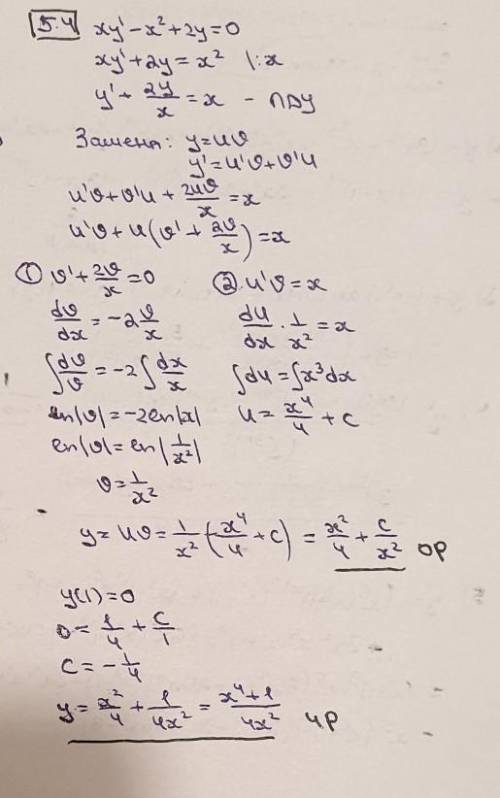 5.4 xy' - x² + 2y = 0
xy' + 2y = x² |:x
y' + 2y/x = x - ЛДУ
Замена: y = uϑ
y' = u'ϑ + ϑ'u
u'ϑ + ϑ'u + 2uϑ/x = x
u'ϑ + u(ϑ' + 2ϑ/x) = x
① ϑ' + 2ϑ/x = 0
dϑ/dx = -2ϑ/x
∫dϑ/ϑ = -2∫dx/x
ln|ϑ| = -2ln|x|
ln|ϑ| = ln|1/x²|
ϑ = 1/x²
② u'ϑ = x
du/dx · 1/x² = x
∫du = ∫x³dx
u = x⁴/4 + c
y = uϑ = 1/x² (x⁴/4 + c) = x²/4 + c/x² ОР
y(1) = 0
0 = 1/4 + c/1
c = -1/4
y = x²/4 + 1/4x² = x⁴+1/4x² ЧР